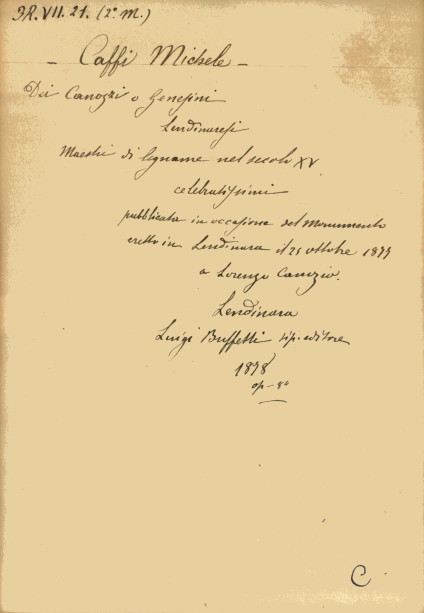 3R. VII. 21. (2º. M.)
- Caffi Michele -
Dei Canozzi o Genesini
Lendinaresi
Maestri di legname nel secolo XV
celebratissimi
pubblicata in occasione del Monumento
eretto in Lendinara il 25 ottobre 1877
a Lorenzo Canozio.
Lendinara
Luigi Buffetti tip. editore
1878
op - 8º
C